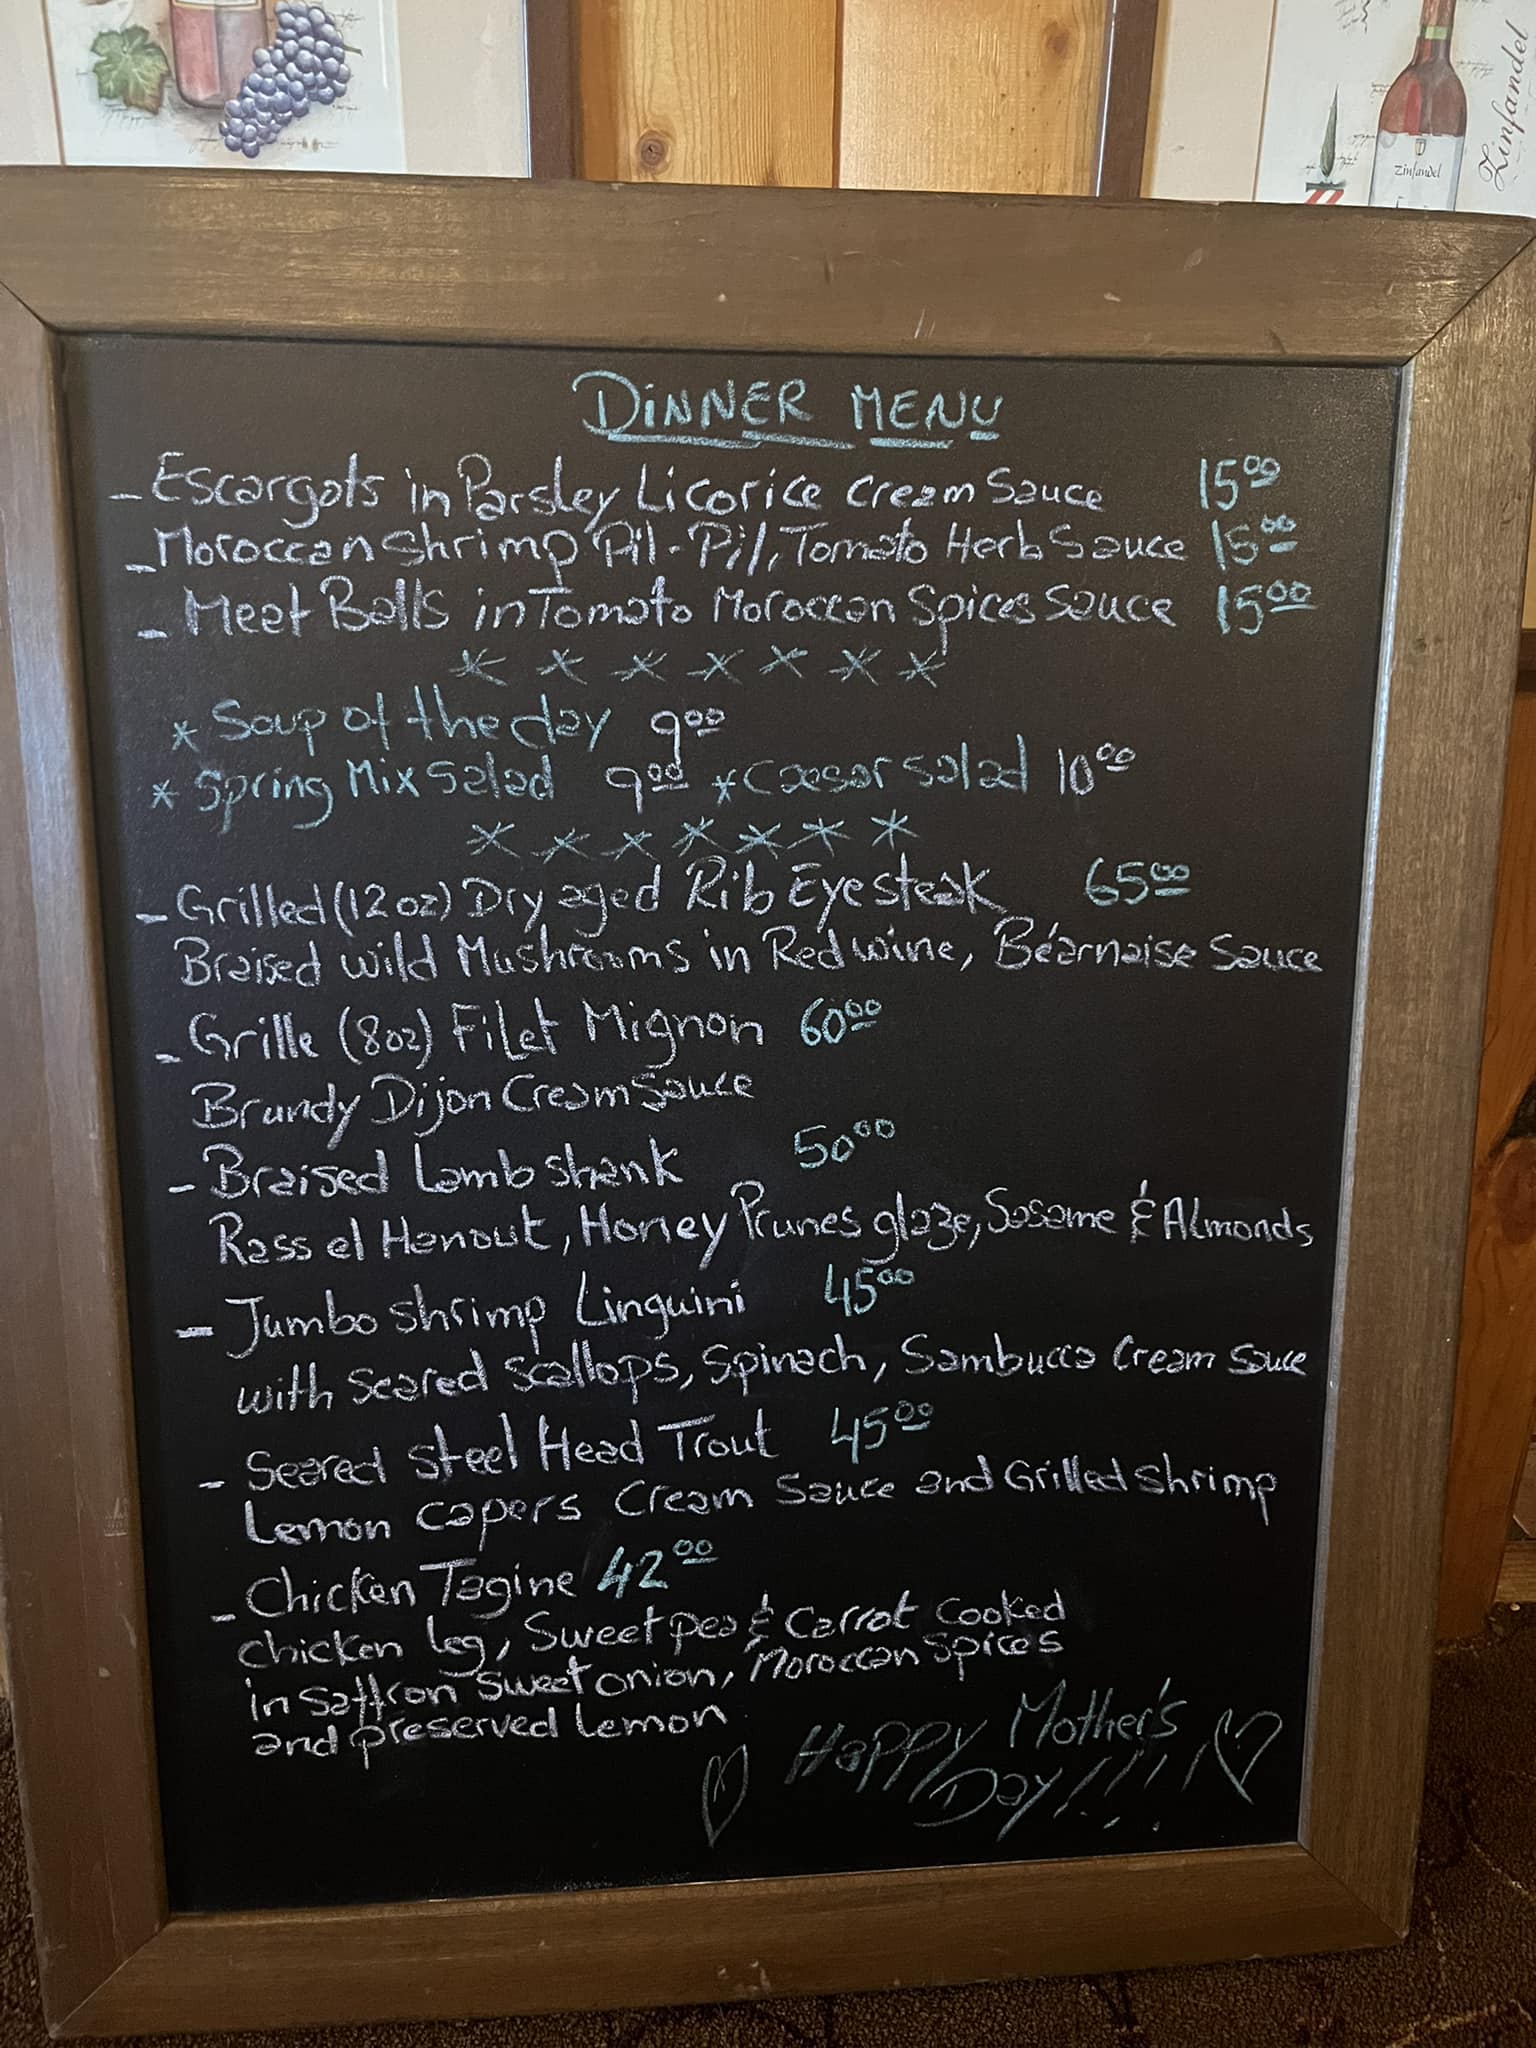 Zinfandel
Zinfandel
DINNER MENU
- Escargots in Parsley Licorice Cream Sauce 15⁰⁰
- Moroccan Shrimp Pil-Pil, Tomato Herb Sauce 15⁰⁰
- Meat Balls in Tomato Moroccan Spices Sauce 15⁰⁰
* * * * * * *
* Soup of the day 9⁰⁰
* Spring Mix Salad 9⁰⁰ * Caesar salad 10⁰⁰
* * * * * * *
- Grilled (12oz) Dry aged Rib Eye steak 65⁰⁰
Braised wild Mushrooms in Red wine, Béarnaise Sauce
- Grille (8oz) Filet Mignon 60⁰⁰
Brandy Dijon Cream Sauce
- Braised Lamb shank 50⁰⁰
Rass el Hanout, Honey Prunes glaze, Sesame & Almonds
- Jumbo shrimp Linguini 45⁰⁰
with seared scallops, Spinach, Sambucca Cream Sauce
- Seared Steel Head Trout 45⁰⁰
Lemon capers Cream Sauce and Grilled Shrimp
- Chicken Tagine 42⁰⁰
chicken leg, Sweet pea & Carrot Cooked
in saffron sweet onion, Moroccan Spices
and preserved Lemon
Happy Mother's
Day!!!